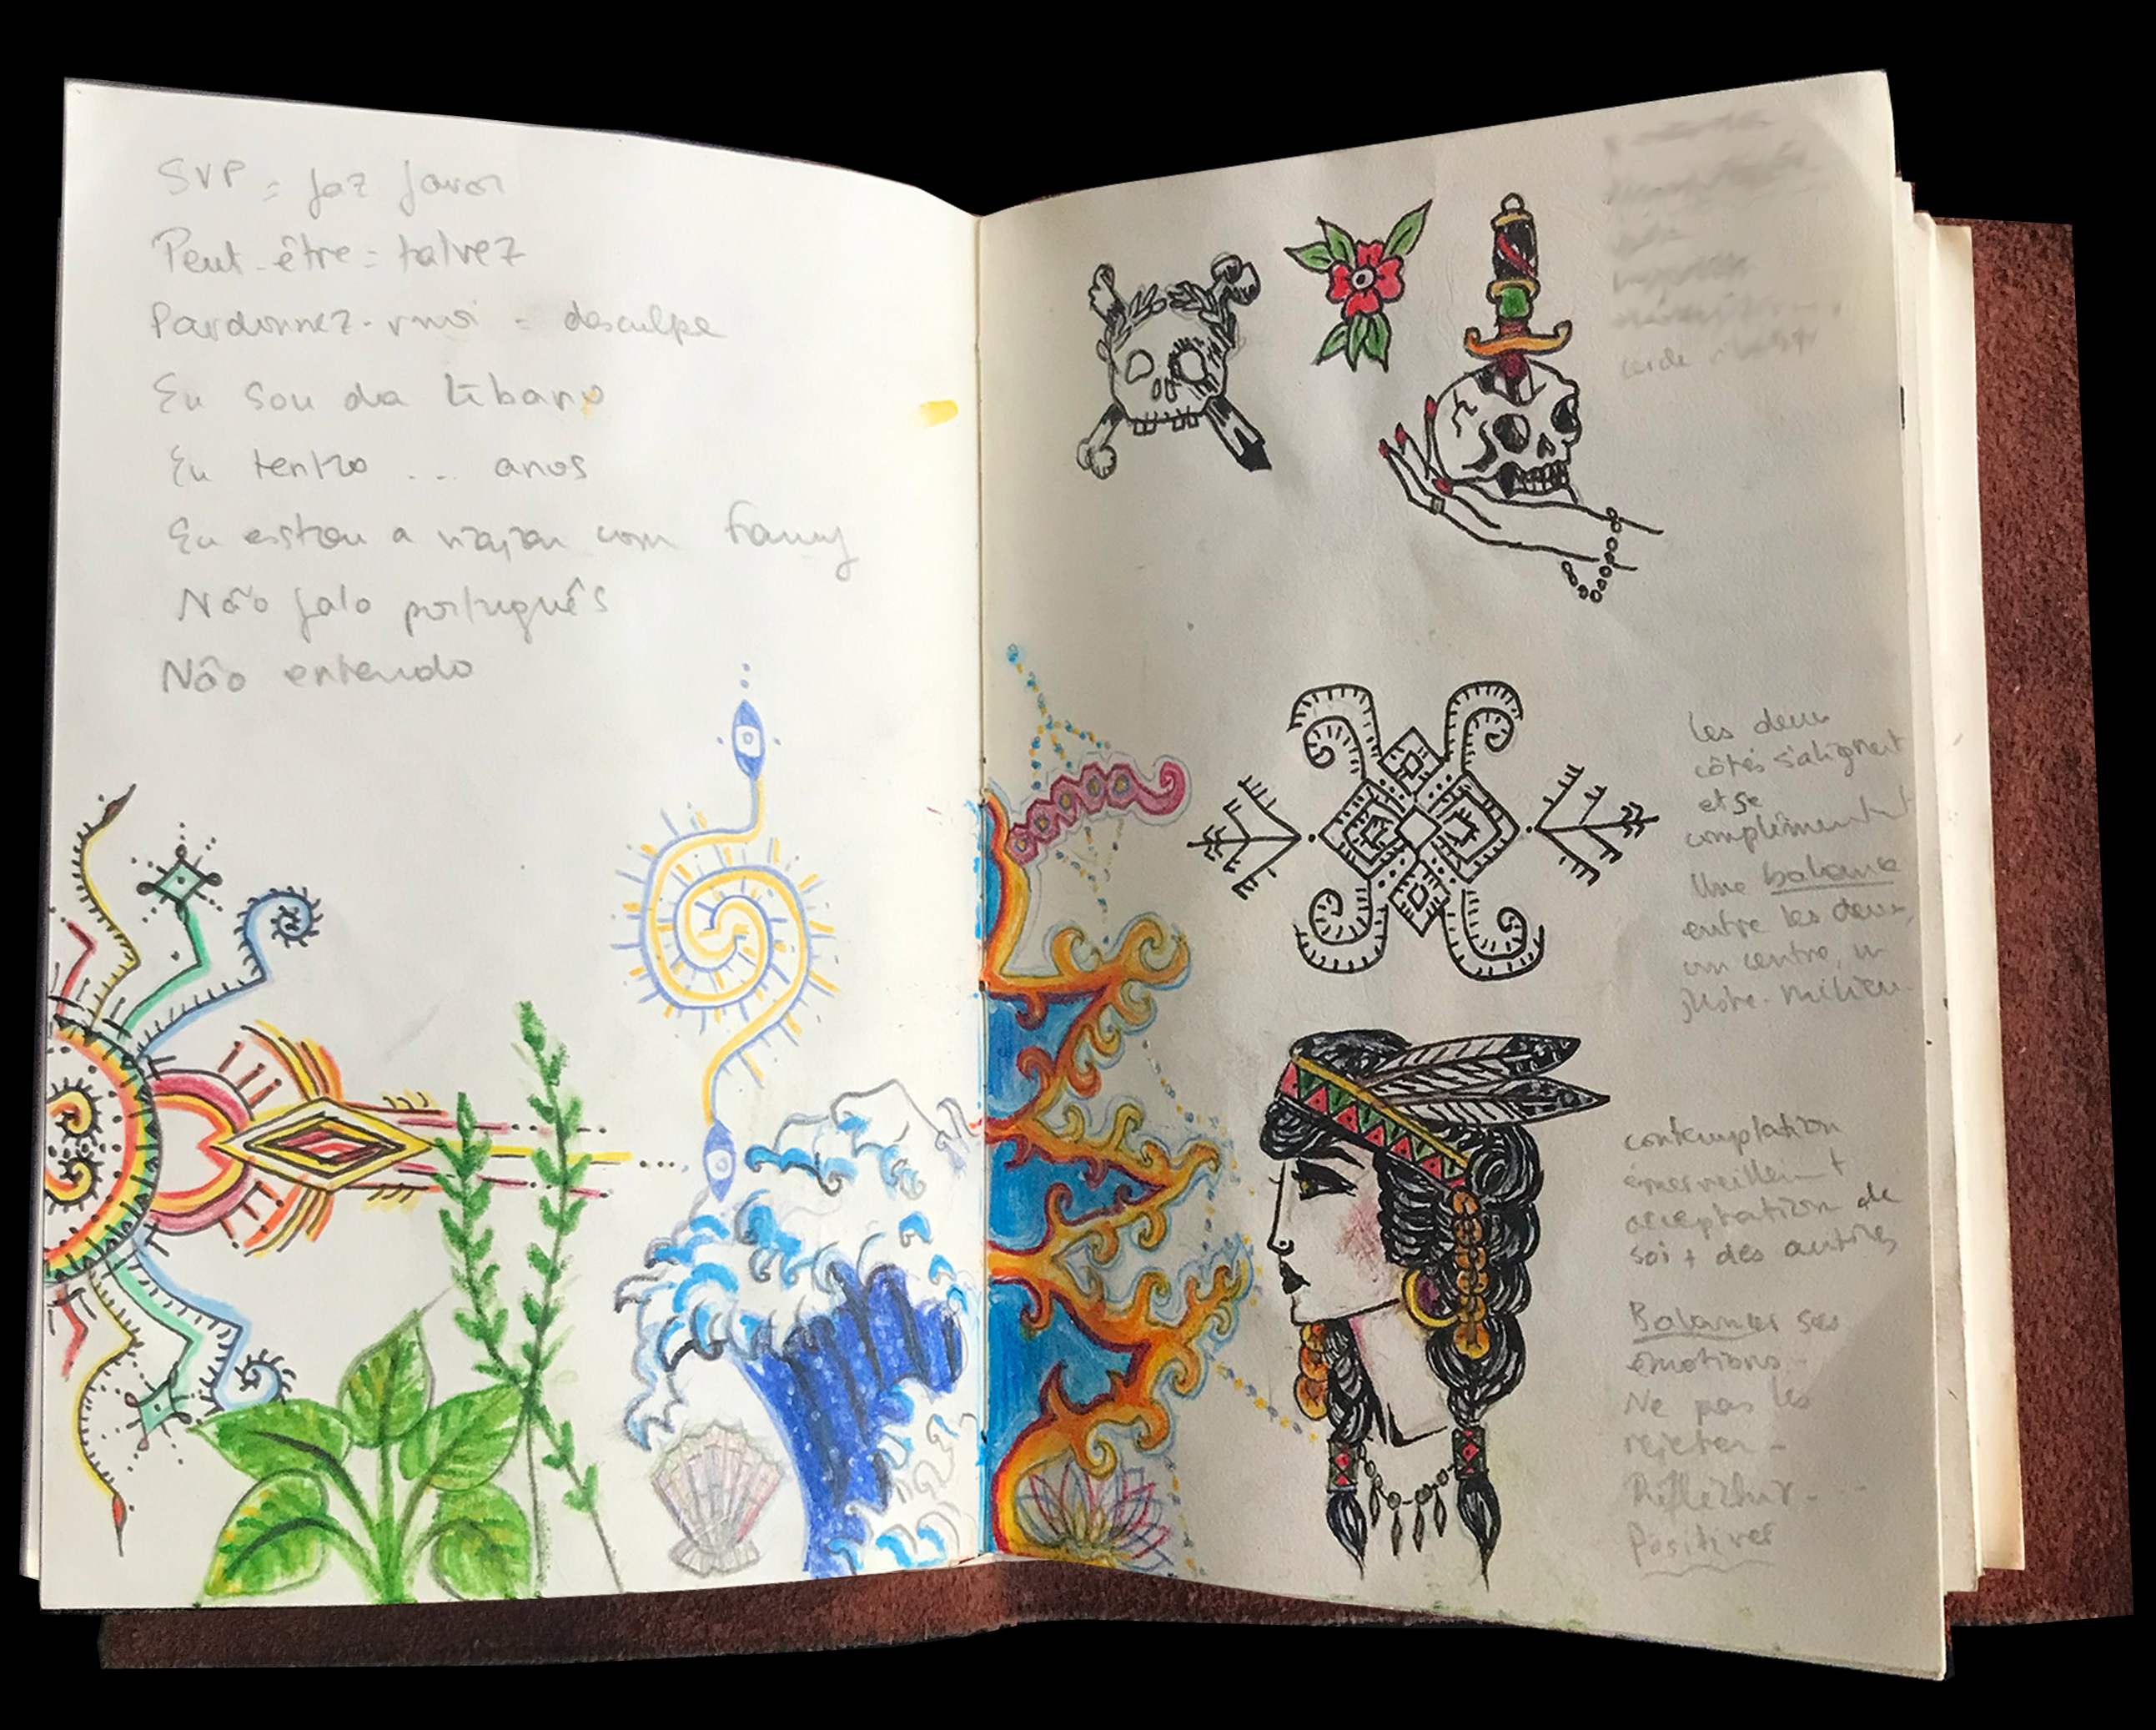 SVP = faz favor
Peut-être = talvez
Pardonnez-moi = desculpe
Eu sou da Líbano
Eu tenho ... anos
Eu estou a viajar com Fanny
Não falo português
Não entendo
Les deux
côtés s'alignent
et se
complémentent
Une balance
entre les deux,
un centre, un
juste-milieu.
contemplation
émerveillem^t
acceptation de
soi + des autres
Balancer ses
émotions -
Ne pas les
rejeter -
Réfléchir - ...
Positiver